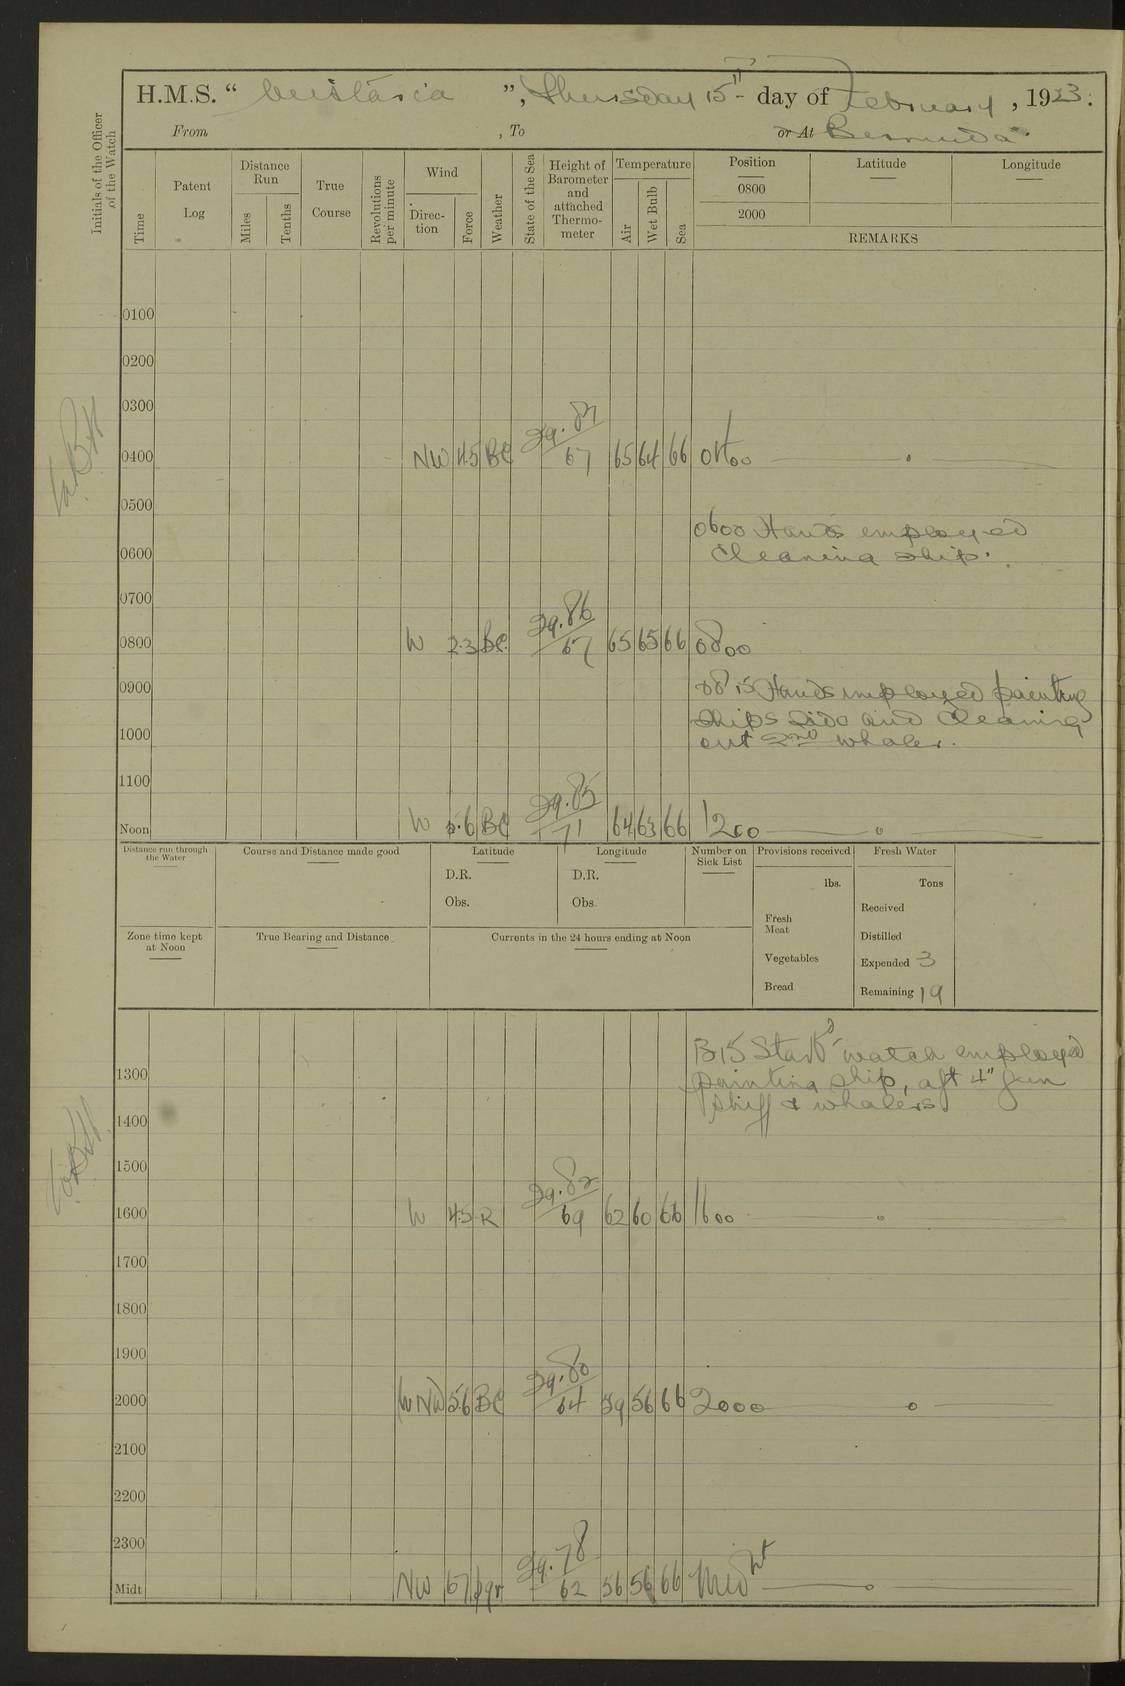 H.M.S. “ Wistaria ”, Thursday 15th day of February, 1923.
From , To or At Bermuda
Initials of the Officer of the Watch
Time
Patent Log
Distance Run
Miles
Tenths
True Course
Revolutions per minute
Wind
Direction
Force
Weather
State of the Sea
Height of Barometer and attached Thermometer
Temperature
Air
Wet Bulb
Sea
Position
0800
2000
Latitude
Longitude
REMARKS
0100
0200
0300
0400 NW 4.5 BC 29.87 67 65 64 66 0400
0500
0600 Hands employed
0600 cleaning ship.
0700
0800 W 2.3 BC 29.86 67 65 65 66 0800
0900 0815 Hands employed painting
ships side and cleaning
1000 out 2nd whaler.
1100
Noon W 5.6 BC 29.85 71 64 63 66 1200
Distance run through the Water
Course and Distance made good
Latitude
D.R.
Obs.
Longitude
D.R.
Obs.
Number on Sick List
Provisions received
lbs.
Fresh Meat
Vegetables
Bread
Fresh Water
Tons
Received
Distilled
Expended 3
Remaining 19
Zone time kept at Noon
True Bearing and Distance
Currents in the 24 hours ending at Noon
1315 Starbd watch employed
1300 painting ship, aft 4" gun
skiff & whalers
1400
1500
1600 W 4.5 R 29.82 69 62 60 66 1600
1700
1800
1900
2000 WNW 5.6 BC 29.80 64 59 56 66 2000
2100
2200
2300
Midt NW 67 bqr 29.78 62 56 56 66 Midnt